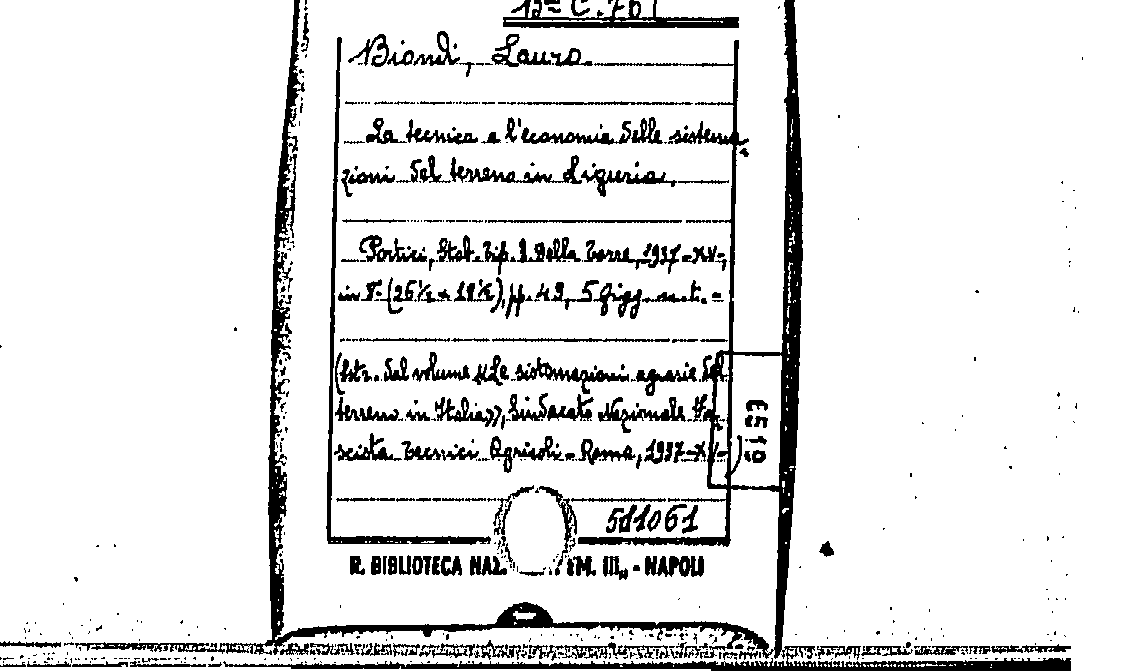 Biondi, Lauro.
La tecnica e l'economia delle sistema-
zioni del terreno in Liguria.
Portici, Stab. Tip. E. Della Torre, 1937-XV-,
in 8- (26½ x 18½), pp. 49, 5 figg. n. t. -
(Estr. dal volume «Le sistemazioni agrarie del
terreno in Italia», Sindacato Nazionale Fa-
scista Tecnici Agricoli - Roma, 1937-XV-)
511061
R. BIBLIOTECA NAZ. EM. III„ - NAPOLI